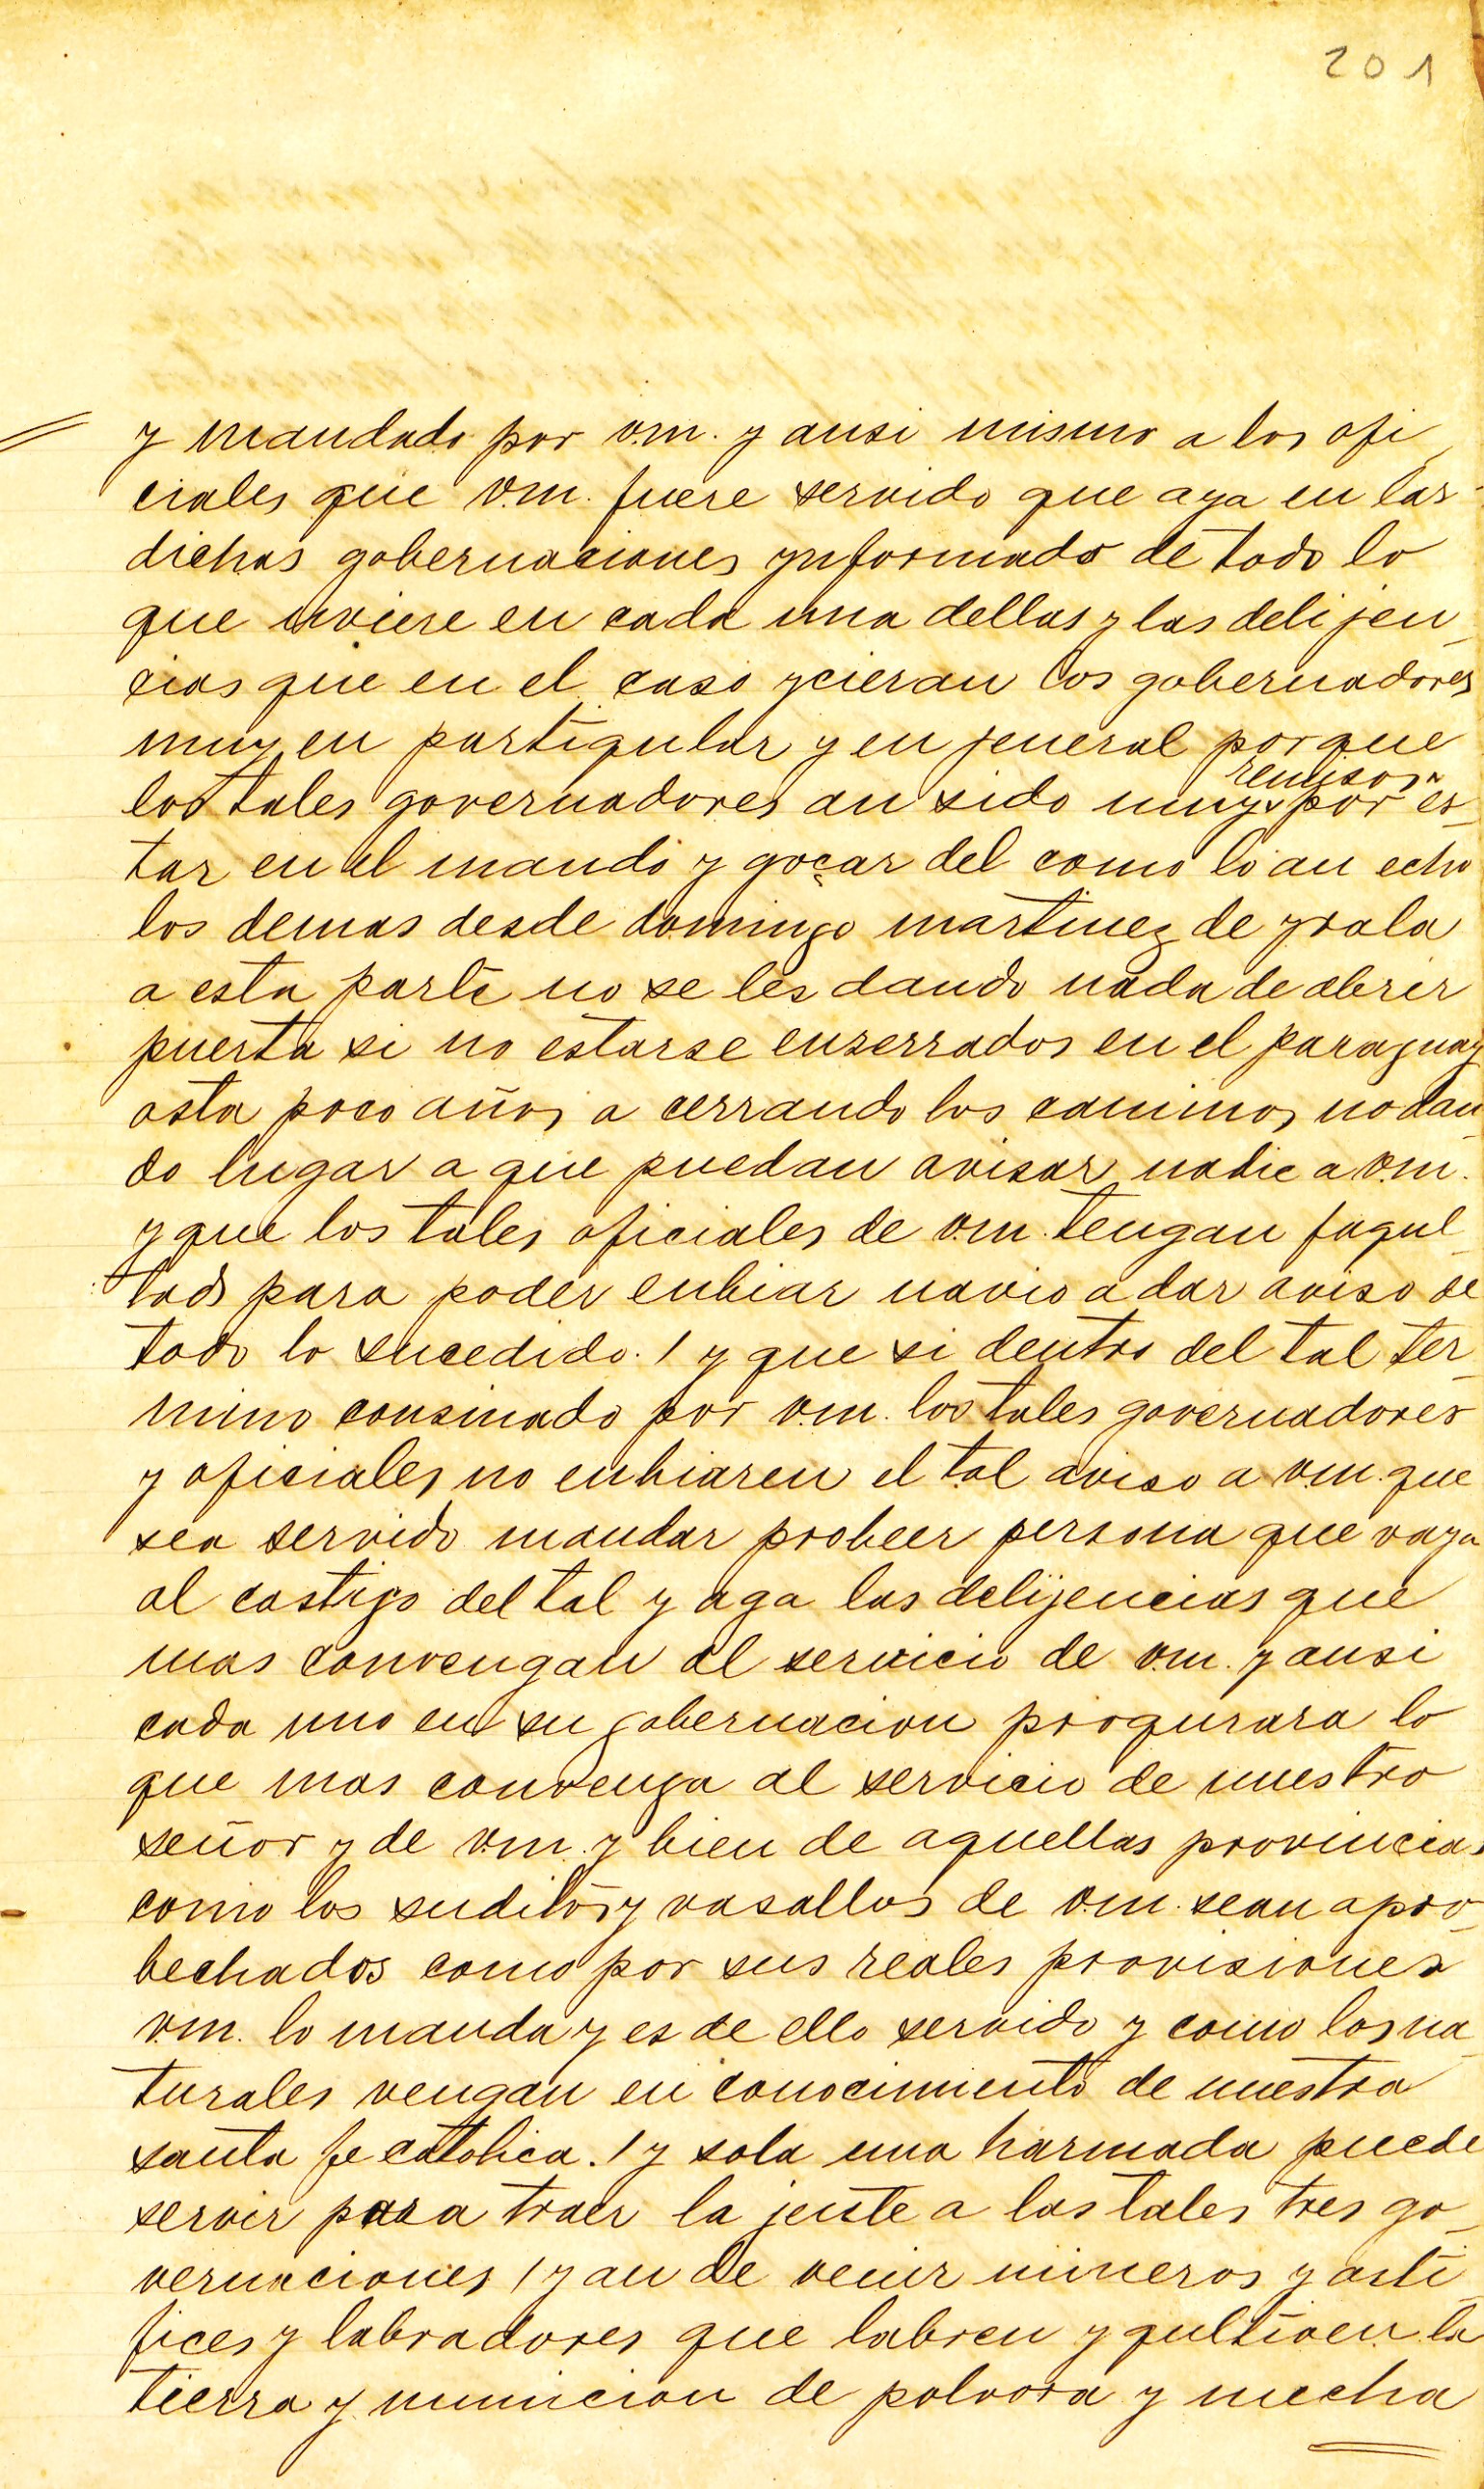 201
y mandado por v.m. y ansi mismo a los ofi
ciales que v.m. fuere servido que aya en las
dichas gobernaciones ynformado de todo lo
que uviere en cada una dellas y las delijen
cias que en el caso ycieran los gobernadores
muy en partiqular y en jeneral porque
remisos
los tales governadores an sido muy por es
tar en el mando y goçar del como lo an echo
los demas desde domingo martinez de yrala
a esta parte no se les dando nada de abrir
puerta si no estarse enserrados en el paraguay
asta poco años a cerrando los caminos no dan
do lugar a que puedan avisar nadie a v.m.
y que los tales oficiales de v.m. tengan faqul
tad para poder enbiar navio a dar aviso de
todo lo sucedido. / y que si dentro del tal ter
mino consinado por v.m. los tales governadores
y oficiales no enbiaren el tal aviso a v.m. que
sea servido mandar probeer persona que vaya
al castigo del tal y aga las delijencias que
mas convengan al servicio de v.m. y ansi
cada uno en su gobernacion proqurara lo
que mas convenga al servicio de nuestro
señor y de v.m. y bien de aquellas provincias
como los suditos y vasallos de v.m. sean apro
bechados como por sus reales provisiones
v.m. lo manda y es de ello servido y como los na
turales vengan en conocimiento de nuestra
santa fe catolica. / y sola una harmada puede
servir para traer la jente a las tales tres go
vernaciones / y an de venir mineros y arti
fices y labradores que labren y qultiven la
tierra y municion de polvora y mecha